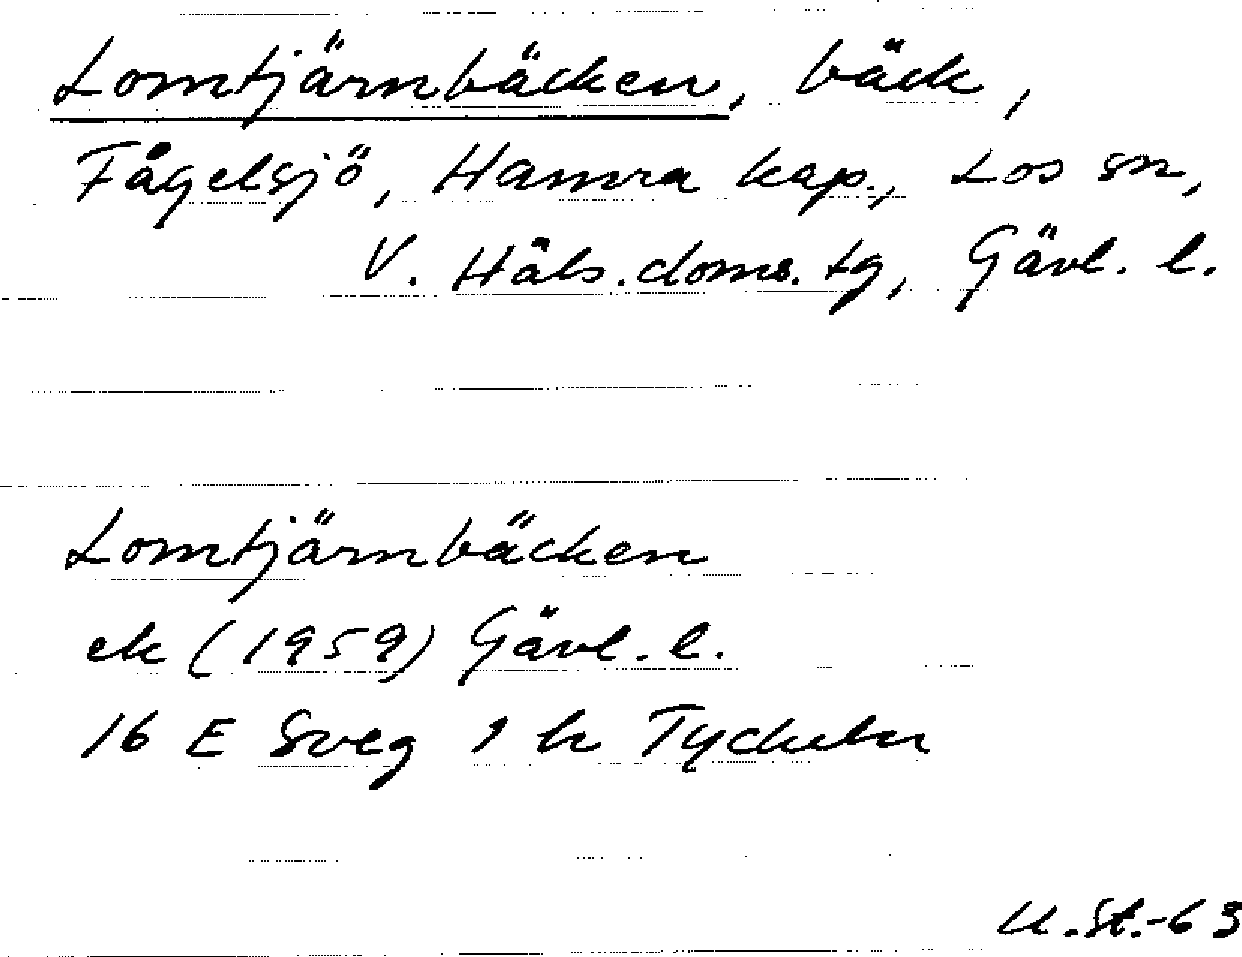 Lomtjärnbäcken, bäck,
Fågelsjö, Hamra kap., Los sn,
V. Häls. doms. tg, Gävl. l.
Lomtjärnbäcken
ek (1959) Gävl. l.
16 E Sveg 1 h
U.St.-63